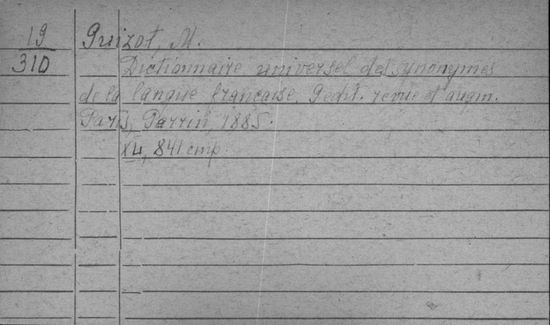 19
310
Guizot, M.
Dictionnaire universel des synonymes
de la langue française. 9 edit. revue et augm.
Paris, Perrin, 1885.
XL, 841 cmp.